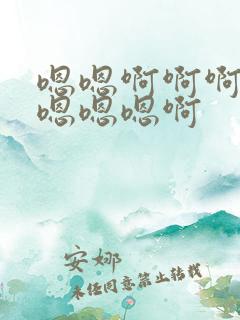 嗯嗯啊啊啊
嗯嗯嗯啊
安娜
未经同意禁止转载